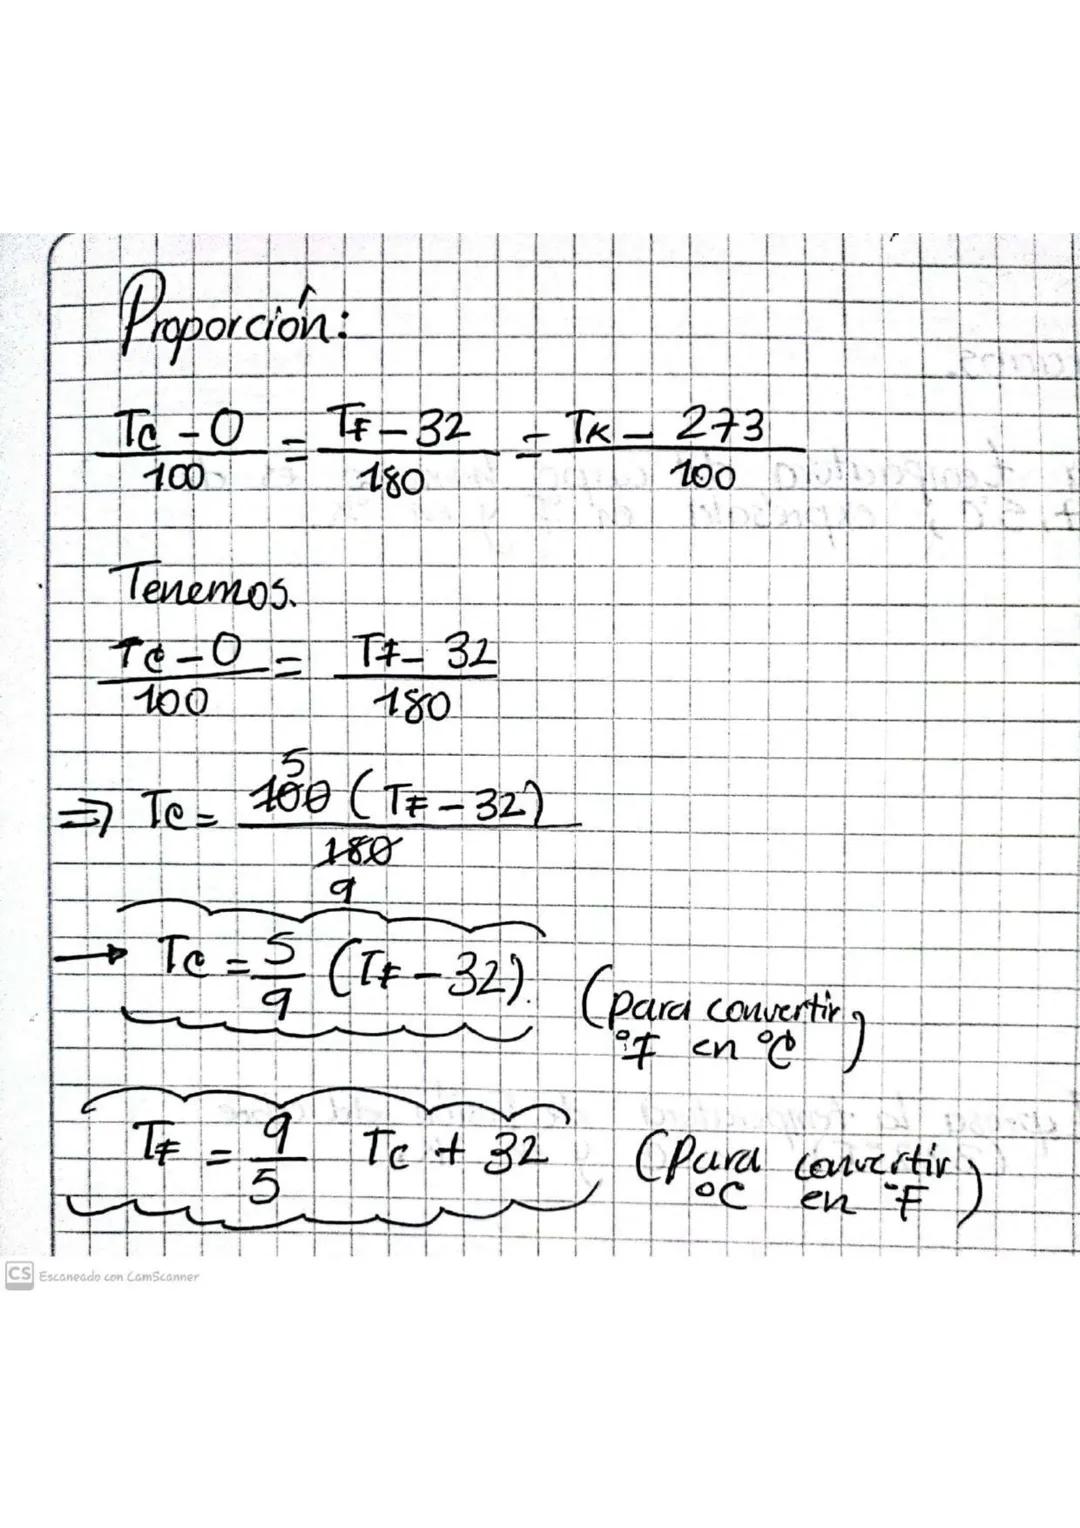 Proporción:
Tc - 0 / 100 = TF - 32 / 180 = TK - 273 / 100
Tenemos.
Tc - 0 / 100 = TF - 32 / 180
⇒ Tc = 100 5 (TF - 32) / 180 9
→ Tc = 5/9 (TF - 32). (para convertir
°F en °C)
TF = 9/5 Tc + 32 (Para convertir
°C en °F)
CS Escaneado con CamScanner